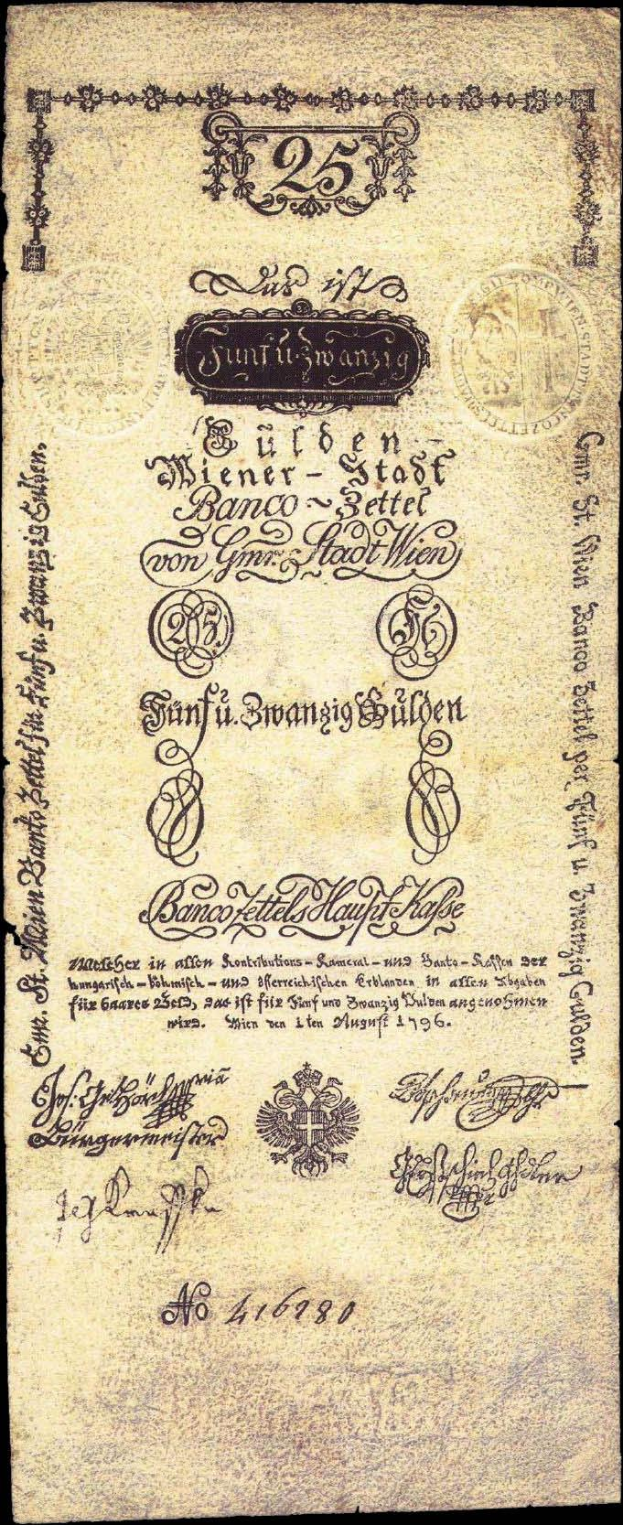 25
Das ist
Fünf u. Zwanzig
Gülden
Wiener - Stadt
Banco ~ Zettel
von Gmr. Stadt Wien
25 Fl
Fünf u. Zwanzig Gülden
Banco Zettels Haupt Kasse
Welcher in allen Kontributions - Kameral - und Banko - Kassen der
hungarisch - böhmisch - und österreichischen Erblanden in allen Abgaben
für baares Geld, das ist für Fünf und Zwanzig Gulden angenohmen
wird. Wien den 1ten August 1796.
Gmr. St. Wien Banco Zettel für Fünf u. Zwanzig Gulden.
Gmr. St. Wien Banco Zettel per Fünf u. Zwanzig Gulden.
Jos.
Bürgermeister
No 416280